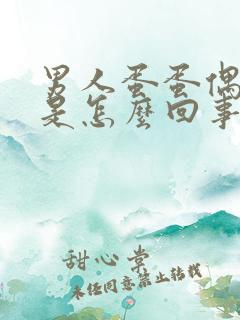 男人蛋蛋偶
是怎麼回事
甜心堂
未经同意禁止转载